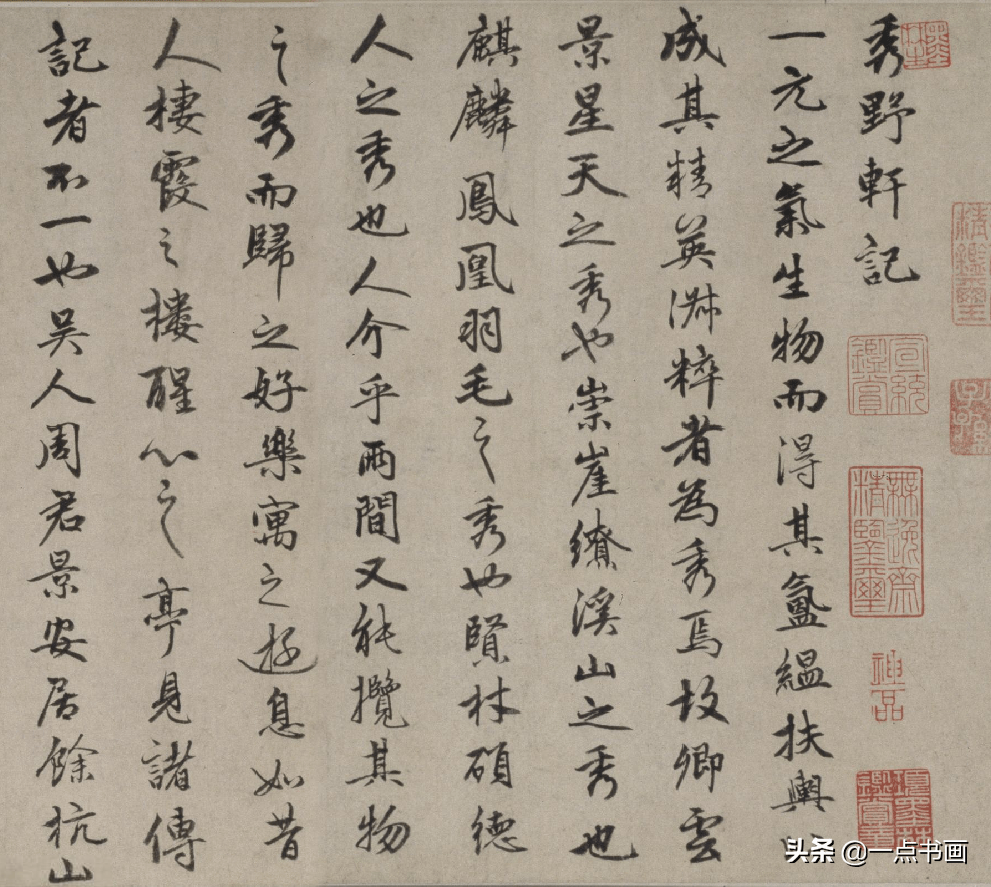 秀野軒記
一元之氣生物而得其氳緼扶輿以
成其精英淑粹者為秀焉故卿雲
景星天之秀也崇崖繚溪山之秀也
麒麟鳳凰羽毛之秀也賢材碩德
人之秀也人介乎兩間又能攬其物
之秀而歸之好樂寓之游息如昔
人棲霞之樓醒心之亭見諸傳
記者不一也吳人周君景安居餘杭山
宣統鑒賞
無逸齋精鑒璽
神品
項墨林鑒賞章
头条 @一点书画